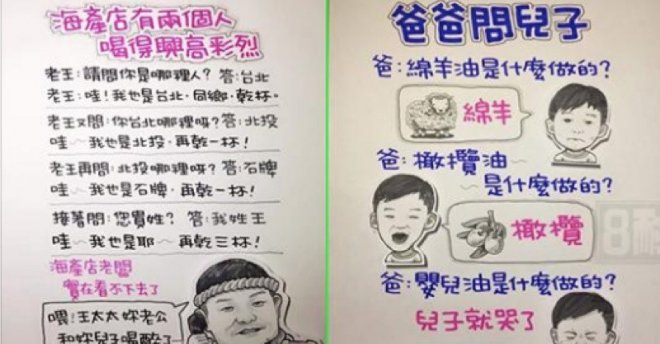 海產店有兩個人
喝得興高彩烈
老王:請問你是哪裡人? 答:台北
老王:哇!我也是台北,同鄉,乾杯。
老王又問:你台北哪裡呀? 答:北投
哇~我也是北投,再乾一杯!
老王再問:北投哪裡呀? 答:石牌
哇~我也是石牌,再乾一杯!
接著問:您貴姓? 答:我姓王
哇~我也是耶~再乾三杯!
海產店老闆
實在看不下去了
喂!王太太妳老公
和妳兒子喝醉了
爸爸問兒子
爸:綿羊油是什麼做的?
綿羊
爸:橄欖油
~是什麼做的?
橄欖
爸:嬰兒油是什麼做的?
兒子就哭了